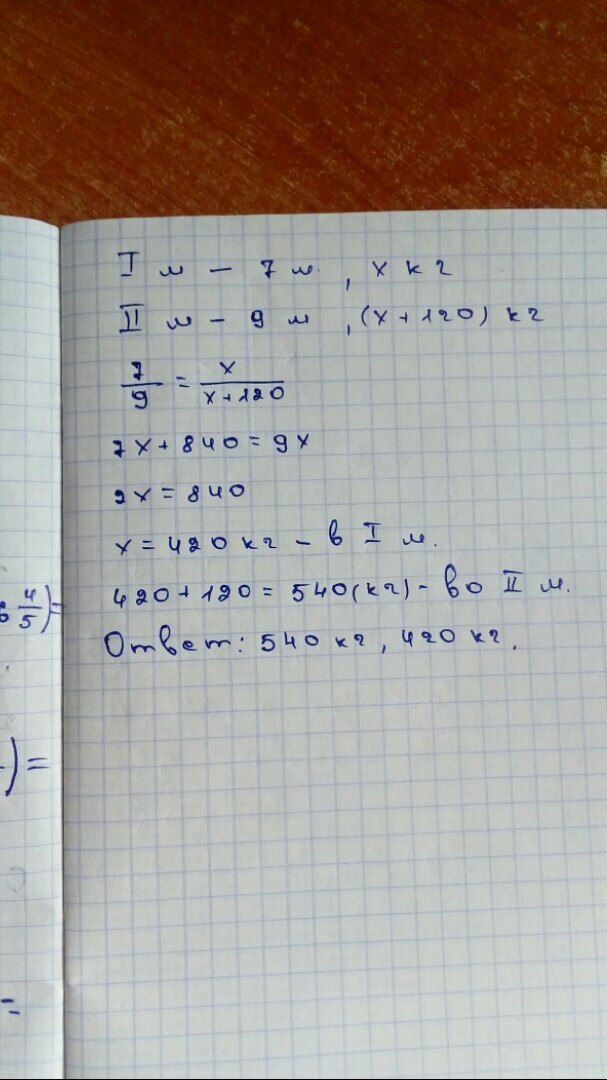 I м – 7 м, x кг
II м – 9 м, (x + 120) кг
7/9 = x/(x+120)
7x + 840 = 9x
2x = 840
x = 420 кг – в I м.
420 + 120 = 540 (кг) – во II м.
Ответ: 540 кг, 420 кг.
4/5)=
)=
=